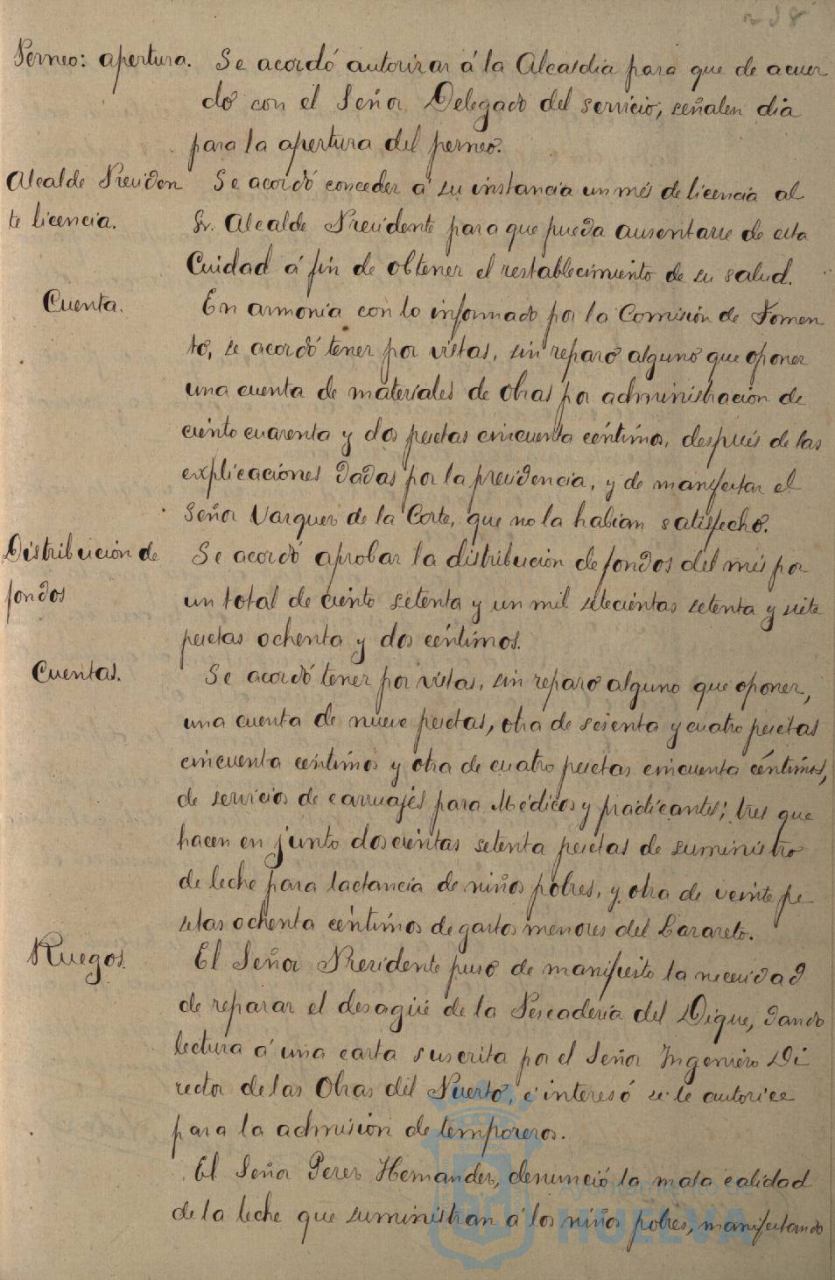 238
Perneo: apertura. Se acordó autorizar á la Alcaldía para que de acuer
do con el Señor Delegado del servicio, señalen dia
para la apertura del perneo.
Alcalde Presiden Se acordó conceder á su instancia un més de licencia al
te licencia. Sr. Alcalde Presidente para que pueda ausentarse de esta
Cuidad á fin de obtener el restablecimiento de su salud.
Cuenta. En armonía con lo informado por la Comisión de Fomen
to, se acordó tener por vistas, sin reparo alguno que oponer
una cuenta de materiales de obras por administración de
ciento cuarenta y dos pesetas cincuenta céntimos, después de las
explicaciones dadas por la presidencia, y de manifestar el
Señor Vazquez de la Corte, que no la habian satisfecho.
Distribución de Se acordó aprobar la distribución de fondos del més por
fondos un total de ciento setenta y un mil setecientas setenta y siete
pesetas ochenta y dos céntimos.
Cuentas. Se acordó tener por vistas, sin reparo alguno que oponer,
una cuenta de nueve pesetas, otra de sesenta y cuatro pesetas
cincuenta céntimos y otra de cuatro pesetas cincuenta céntimos,
de servicios de carruajes para Médicos y practicantes; tres que
hacen en junto doscientas setenta pesetas de suministro
de leche para lactancia de niños pobres, y otra de veinte pe
setas ochenta céntimos de gastos menores del Lazareto.
Ruegos. El Señor Presidente puso de manifiesto la necesidad
de reparar el desagüe de la Pescadería del Dique, dando
lectura á una carta suscrita por el Señor Ingeniero Di
rector de las Obras del Puerto, é interesó se le autorice
para la admisión de temporeros.
El Señor Perez Hernandez, denunció la mala calidad
de la leche que suministran á los niños pobres, manifestando
HUELVA